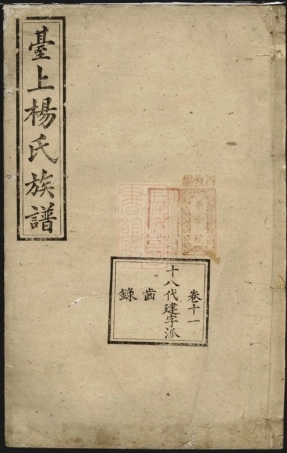 臺上楊氏族譜
卷十一
十八代建字派
齒
錄